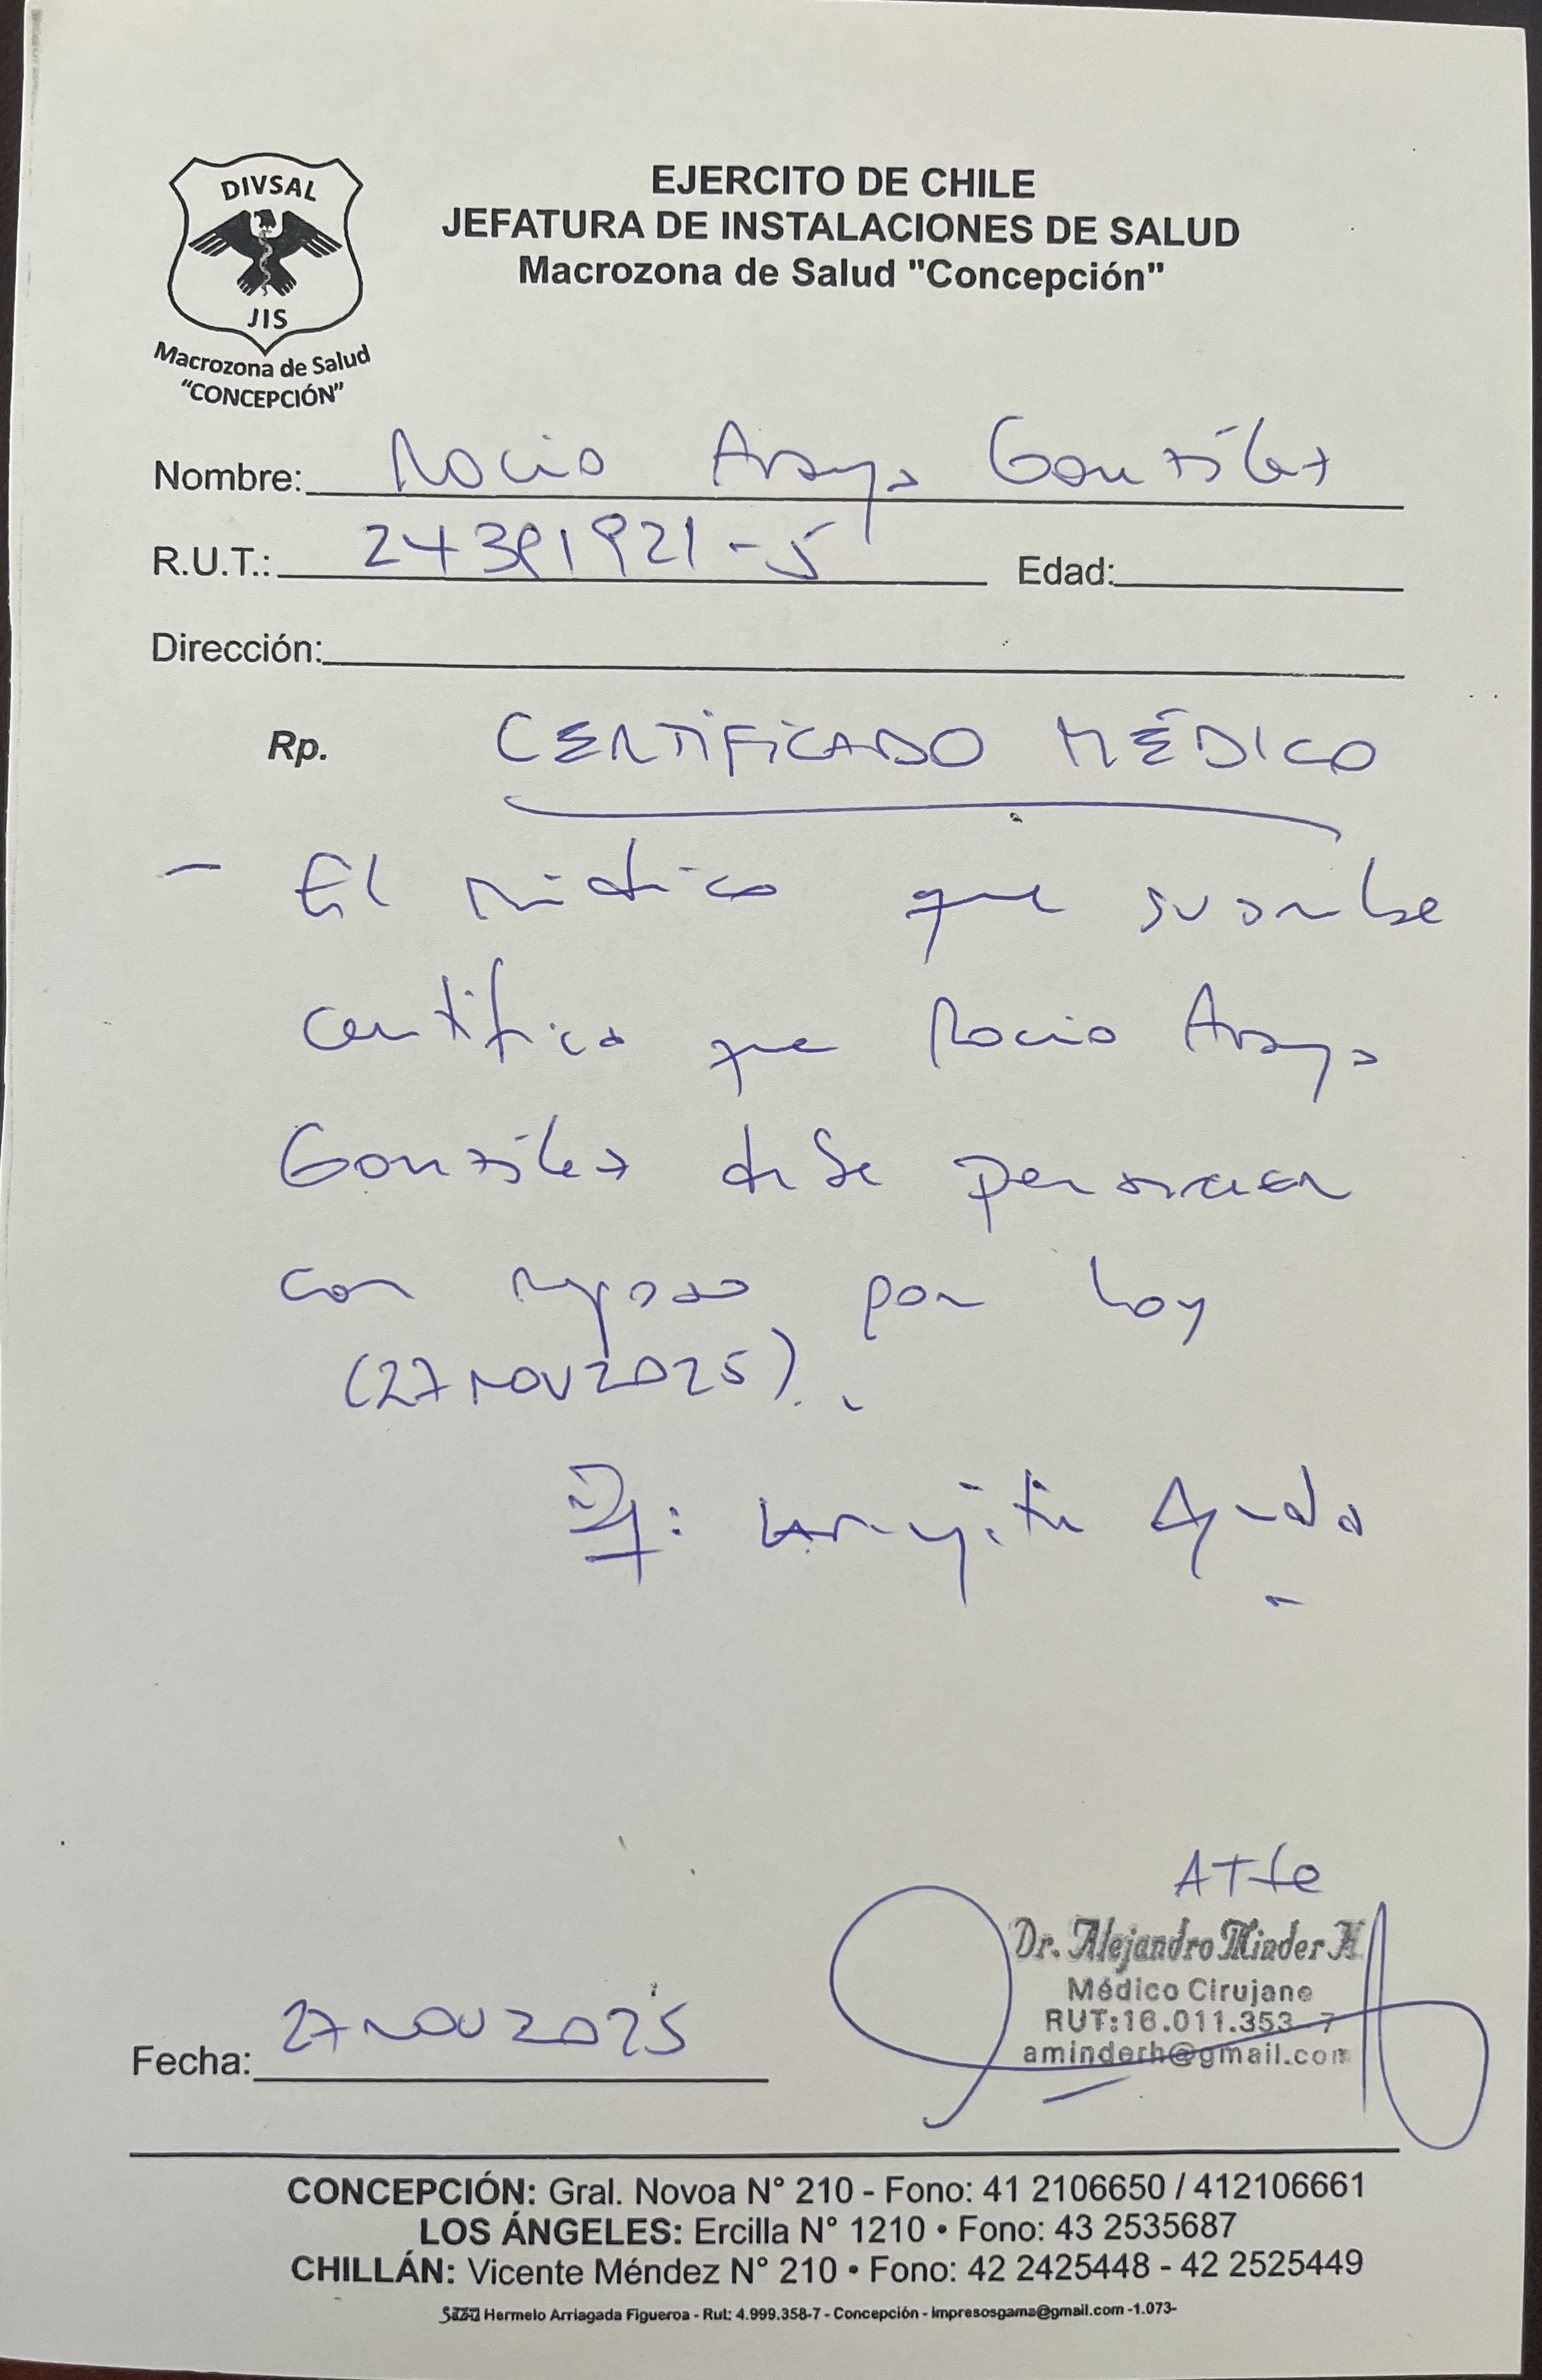 DIVSAL
JIS
Macrozona de Salud
"CONCEPCIÓN"
EJERCITO DE CHILE
JEFATURA DE INSTALACIONES DE SALUD
Macrozona de Salud "Concepción"
Nombre: Rocio Araya González
R.U.T.: 24391921-5 Edad:
Dirección:
Rp. CERTIFICADO MÉDICO
- El médico que suscribe
certifica que Rocio Araya
González debe permanecer
con reposo por hoy
(27 NOV 2025).
Dg: Laringitis Aguda
ATTE
Dr. Alejandro Minder H
Médico Cirujano
RUT:16.011.353-7
aminderh@gmail.com
Fecha: 27 NOV 2025
CONCEPCIÓN: Gral. Novoa N° 210 - Fono: 41 2106650 / 412106661
LOS ÁNGELES: Ercilla N° 1210 • Fono: 43 2535687
CHILLÁN: Vicente Méndez N° 210 • Fono: 42 2425448 - 42 2525449
Hermelo Arriagada Figueroa - Rut: 4.999.358-7 - Concepción - impresosgama@gmail.com -1.073-